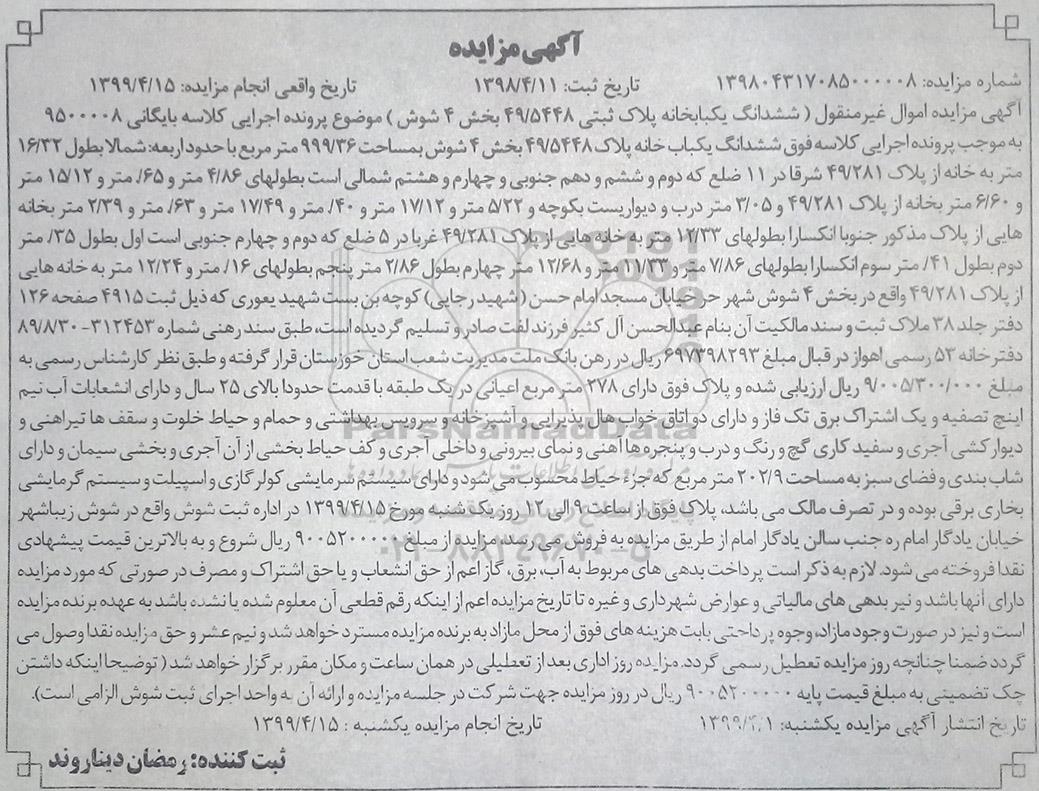 آگهی مزایده
شماره مزایده: ۱۳۹۸۰۴۳۱۷۰۸۵۰۰۰۰۰۸ تاریخ ثبت: ۱۳۹۸/۴/۱۱ تاریخ واقعی انجام مزایده: ۱۳۹۹/۴/۱۵
آگهی مزایده اموال غیرمنقول ( ششدانگ یکبابخانه پلاک ثبتی ۴۹/۵۴۴۸ بخش ۴ شوش ) موضوع پرونده اجرایی کلاسه بایگانی ۹۵۰۰۰۰۸
به موجب پرونده اجرایی کلاسه فوق ششدانگ یکباب خانه پلاک ۴۹/۵۴۴۸ بخش ۴ شوش بمساحت ۹۹۹/۳۶ متر مربع با حدود اربعه: شمالا بطول ۱۶/۳۲
متر به خانه از پلاک ۴۹/۲۸۱ شرقا در ۱۱ ضلع که دوم و ششم و دهم جنوبی و چهارم و هشتم شمالی است بطولهای ۴/۸۶ متر و ۶۵/. متر و ۱۵/۱۲ متر
و ۶/۶۰ متر بخانه از پلاک ۴۹/۲۸۱ و ۳/۰۵ متر درب و دیواریست بکوچه و ۵/۲۲ متر و ۱۷/۱۲ متر و ۴۰/. متر و ۱۷/۴۹ متر و ۶۳/. متر و ۲/۳۹ متر بخانه
هایی از پلاک مذکور جنوبا انکسارا بطولهای ۱۲/۳۳ متر به خانه هایی از پلاک ۴۹/۲۸۱ غربا در ۵ ضلع که دوم و چهارم جنوبی است اول بطول ۳۵/. متر
دوم بطول ۴۱/. متر سوم انکسارا بطولهای ۷/۸۶ متر و ۱۱/۳۳ متر و ۱۲/۶۸ متر چهارم بطول ۲/۸۶ متر پنجم بطولهای ۱۶/. متر و ۱۲/۲۴ متر به خانه هایی
از پلاک ۴۹/۲۸۱ واقع در بخش ۴ شوش شهر حر خیابان مسجد امام حسن ( شهید رجایی) کوچه بن بست شهید یعوری که ذیل ثبت ۴۹۱۵ صفحه ۱۲۶
دفتر جلد ۳۸ ملاک ثبت و سند مالکیت آن بنام عبدالحسن آل کثیر فرزند لفت صادر و تسلیم گردیده است، طبق سند رهنی شماره ۳۱۲۴۵۳-۸۹/۸/۳۰
دفترخانه ۵۳ رسمی اهواز در قبال مبلغ ۶۹۷۳۹۸۲۹۳ ریال در رهن بانک ملت مدیریت شعب استان خوزستان قرار گرفته و طبق نظر کارشناس رسمی به
مبلغ ۹/۰۰۵/۳۰۰/۰۰۰ ریال ارزیابی شده و پلاک فوق دارای ۲۷۸ متر مربع اعیانی در یک طبقه با قدمت حدودا بالای ۲۵ سال و دارای انشعابات آب نیم
اینچ تصفیه و یک اشتراک برق تک فاز و دارای دو اتاق خواب هال پذیرایی و آشپزخانه و سرویس بهداشتی و حمام و حیاط خلوت و سقف ها تیراهنی و
دیوارکشی آجری و سفید کاری گچ و رنگ و درب و پنجره ها آهنی و نمای بیرونی و داخلی آجری و کف حیاط بخشی از آن آجری و بخشی سیمان و دارای
شاب بندی و فضای سبز به مساحت ۲۰۲/۹ متر مربع که جزء حیاط محسوب می شود و دارای سیستم سرمایشی کولر گازی و اسپیلت و سیستم گرمایشی
بخاری برقی بوده و در تصرف مالک می باشد، پلاک فوق از ساعت ۹ الی ۱۲ روز یکشنبه مورخ ۱۳۹۹/۴/۱۵ در اداره ثبت شوش واقع در شوش زیباشهر
خیابان یادگار امام ره جنب سالن یادگار امام از طریق مزایده به فروش می رسد، مزایده از مبلغ ۹۰۰۵۲۰۰۰۰۰ ریال شروع و به بالاترین قیمت پیشهادی
نقدا فروخته می شود. لازم به ذکر است پرداخت بدهی های مربوط به آب، برق، گاز اعم از حق انشعاب و یا حق اشتراک و مصرف در صورتی که مورد مزایده
دارای آنها باشد و نیر بدهی های مالیاتی و عوارض شهرداری و غیره تا تاریخ مزایده اعم از اینکه رقم قطعی آن معلوم شده یا نشده باشد به عهده برنده مزایده
است و نیز در صورت وجود مازاد، وجوه پرداختی بابت هزینه های فوق از محل مازاد به برنده مزایده مسترد خواهد شد و نیم عشر و حق مزایده نقدا وصول می
گردد ضمنا چنانچه روز مزایده تعطیل رسمی گردد. مزایده روز اداری بعد از تعطیلی در همان ساعت و مکان مقرر برگزار خواهد شد ( توضیحا اینکه داشتن
چک تضمینی به مبلغ قیمت پایه ۹۰۰۵۲۰۰۰۰۰ ریال در روز مزایده جهت شرکت در جلسه مزایده و ارائه آن به واحد اجرای ثبت شوش الزامی است).
تاریخ انتشار آگهی مزایده یکشنبه: ۱۳۹۹/۴/۱ تاریخ انجام مزایده یکشنبه : ۱۳۹۹/۴/۱۵
ثبت کننده: رمضان دیناروند
ParsNamadData
۰۲۱-۸۸۳۴۹۶۷۰-۵